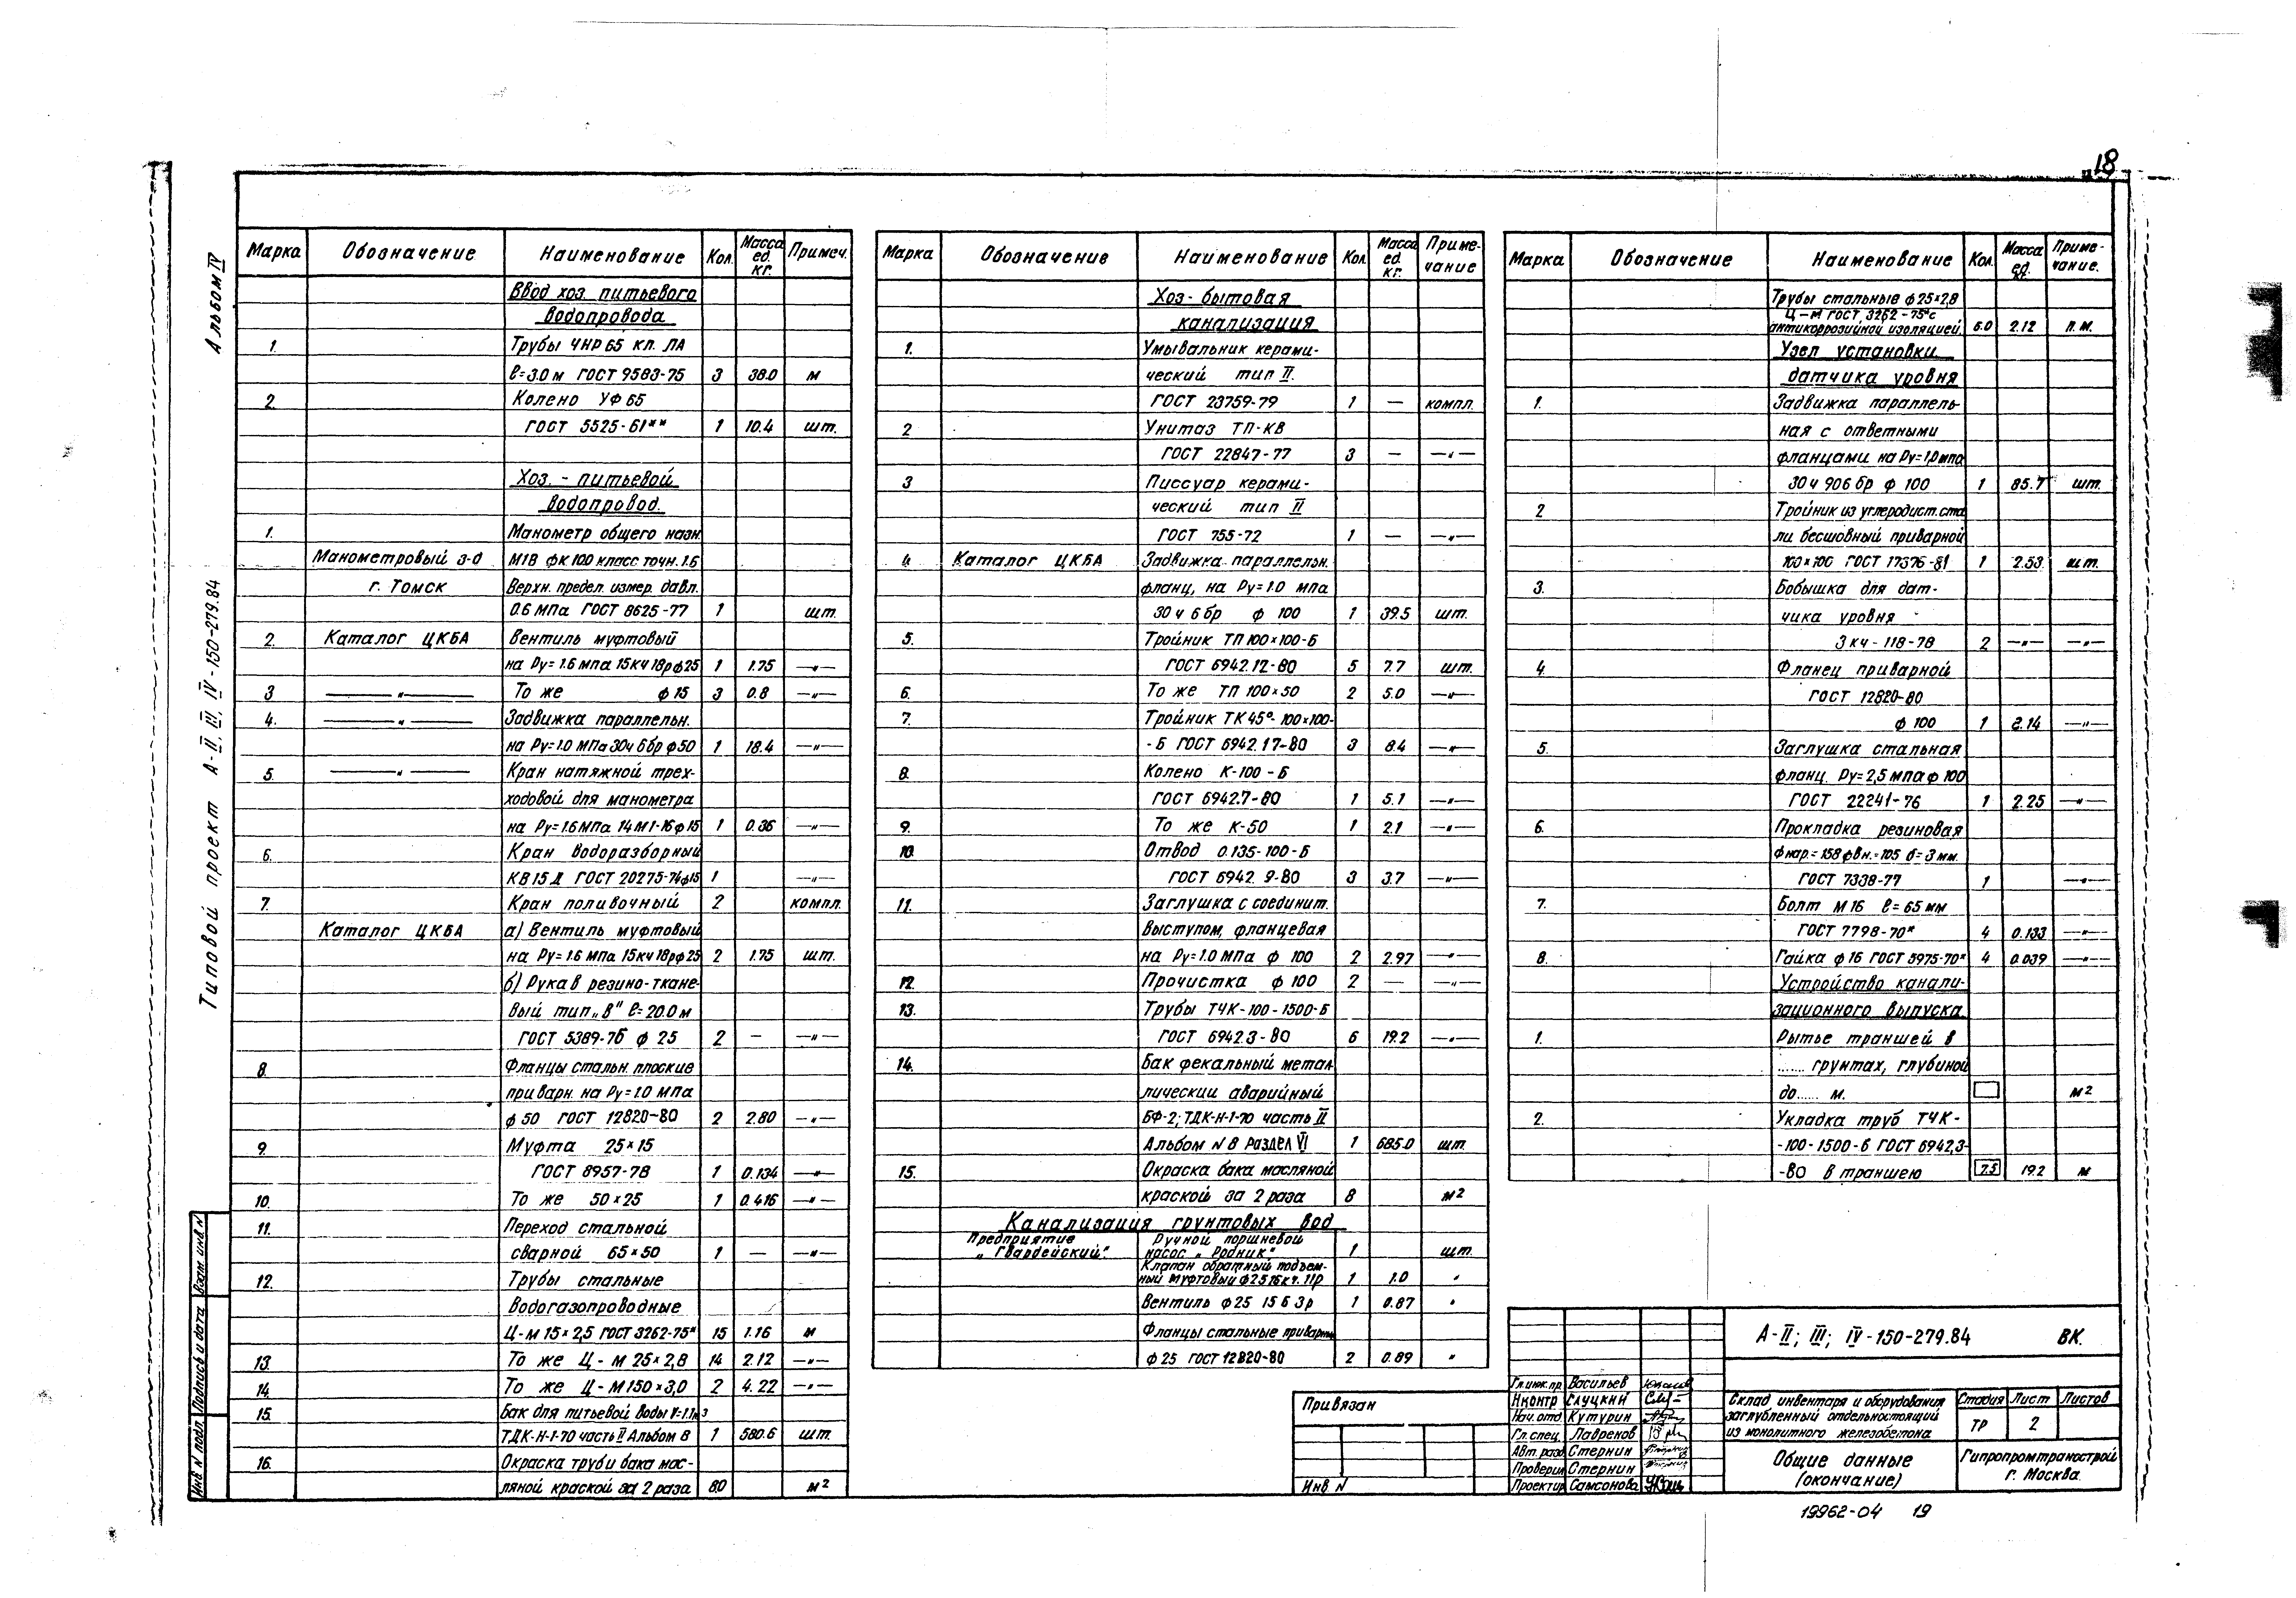 18
Альбом IV
Типовой проект А-II, III, IV-150-279.84
Марка Обозначение Наименование Кол. Масса ед. кг. Примеч.
Ввод хоз. питьевого
водопровода
1. Трубы ЧНР 65 кл. ЛА
ℓ=3.0 м ГОСТ 9583-75 3 38.0 м
2. Колено УФ 65
ГОСТ 5525-61** 1 10.4 шт.
Хоз. - питьевой
водопровод.
1. Манометр общего назн.
Манометровый з-д М1В фк 100 класс точн. 1.6
г. Томск Верхн. предел. измер. давл.
0.6 МПа ГОСТ 8625-77 1 шт.
2. Каталог ЦКБА Вентиль муфтовый
на Ру=1.6 мпа 15кч 18р ф25 1 1.75 —"—
3 —"— То же ф 15 3 0.8 —"—
4. —"— Задвижка параллельн.
на Ру=1.0 МПа 30ч 6бр ф50 1 18.4 —"—
5. —"— Кран натяжной трех-
ходовой для манометра
на Ру=1.6 МПа 14М1-16ф15 1 0.36 —"—
6. Кран водоразборный
КВ15Д ГОСТ 20275-74ф15 1 —"—
7. Кран поливочный 2 компл.
Каталог ЦКБА а) Вентиль муфтовый
на Ру=1.6 МПа 15кч 18рф25 2 1.75 шт.
б) Рукав резино-ткане-
вый тип „В" ℓ=20.0 м
ГОСТ 5389-76 ф 25 2 — —"—
8. Фланцы стальн. плоские
приварн. на Ру=1.0 мпа
ф 50 ГОСТ 12820-80 2 2.80 —"—
9. Муфта 25×15
ГОСТ 8957-78 1 0.134 —"—
10. То же 50×25 1 0.416 —"—
11. Переход стальной
сварной 65×50 1 — —"—
12. Трубы стальные
Водогазопроводные
Ц-м 15×2,5 ГОСТ 3262-75* 15 1.16 м
13. То же Ц-м 25×2,8 14 2.12 —"—
14. То же Ц-М150×3,0 2 4.22 —"—
15. Бак для питьевой воды V=1.1м3
ТДК-Н-1-70 часть II Альбом 8 1 580.6 шт.
16. Окраска труб и бака мас-
ляной краской за 2 раза 80 м2
Марка Обозначение Наименование Кол. Масса ед. кг. Приме-чание
Хоз- бытовая
канализация
1. Умывальник керами-
ческий тип II.
ГОСТ 23759-79 1 — компл.
2 Унитаз ТП-КВ
ГОСТ 22847-77 3 — —"—
3 Писсуар керами-
ческий тип II
ГОСТ 755-72 1 — —"—
4. Каталог ЦКБА Задвижка параллельн.
фланц, на Ру=1.0 мпа
30 ч 6 бр ф 100 1 39.5 шт.
5. Тройник ТП 100×100-Б
ГОСТ 6942.12-80 5 7.7 шт.
6. То же ТП 100×50 2 5.0 —"—
7. Тройник ТК 45°-100×100-
-Б ГОСТ 6942.17-80 3 8.4 —"—
8. Колено К-100-Б
ГОСТ 6942.7-80 1 5.1 —"—
9. То же К-50 1 2.1 —"—
10. Отвод О.135-100-Б
ГОСТ 6942. 9-80 3 3.7 —"—
11. Заглушка с соединит.
выступом, фланцевая
на Ру=1.0 МПа ф 100 2 2.97 —"—
12. Прочистка ф 100 2 — —"—
13. Трубы ТЧК-100-1500-Б
ГОСТ 6942.3-80 6 19.2 —"—
14. Бак фекальный метал
лический аварийный
БФ-2; ТДК-Н-1-70 часть II
Альбом N 8 Раздел VI 1 685.0 шт.
15. Окраска бака масляной
краской за 2 раза 8 м2
Канализация грунтовых вод
Предприятие Ручной поршневой
„Гвардейский". насос „Родник" 1 шт.
Клапан обратный подъем-
ный муфтовый ф25 16кч.11р 1 1.0 "
Вентиль ф 25 15 Б 3р 1 0.87 "
Фланцы стальные приварн
ф 25 ГОСТ 12820-80 2 0.89 "
Марка Обозначение Наименование Кол. Масса ед. кг. Приме-чание.
Трубы стальные ф 25×2,8
Ц-М ГОСТ 3262-75*с
антикоррозийной изоляцией 6.0 2.12 п.м.
Узел установки
датчика уровня
1. Задвижка параллель-
ная с ответными
фланцами на Ру=1,0 мпа
30 ч 906 бр ф 100 1 85.7 шт.
2 Тройник из углеродист. ста
ли бесшовный приварной
100×100 ГОСТ 17376-81 1 2.53. шт.
3. Бобышка для дат-
чика уровня
3 кч-118-78 2 —"— —"—
4. Фланец приварной
ГОСТ 12820-80
ф 100 1 2.14 —"—
5. Заглушка стальная
фланц. Ру=2,5 мпа ф 100
ГОСТ 22241-76 1 2.25 —"—
6. Прокладка резиновая
Ф нар.=158 ф вн.=105 б=3 мм.
ГОСТ 7338-77 1 —"—
7. Болт М16 ℓ=65 мм
ГОСТ 7798-70* 4 0.133 —"—
8. Гайка ф 16 ГОСТ 5975-70* 4 0.039 —"—
Устройство канали-
зационного выпуска.
1. Рытье траншей в
...... грунтах, глубиной
до...... м. м2
2. Укладка труб ТЧК-
-100-1500-Б ГОСТ 6942,3-
-80 в траншею 7.5 19.2 м
Привязан
Инв N
А-II; III; IV-150-279.84 ВК.
Гл.инж.пр. Васильев
Нконтр Слуцкий
Нач. отд. Кутурин
Гл. спец. Лавренов
Авт. разд. Стернин
Проверил Стернин
Проектир Самсонова
Склад инвентаря и оборудования
заглубленный отдельностоящий
из монолитного железобетона
Стадия Лист Листов
ТР 2
Общие данные
(окончание)
Гипропромтрансстрой
г. Москва.
Инв. N подл. Подпись и дата Взам. инв. N
19962-04 19